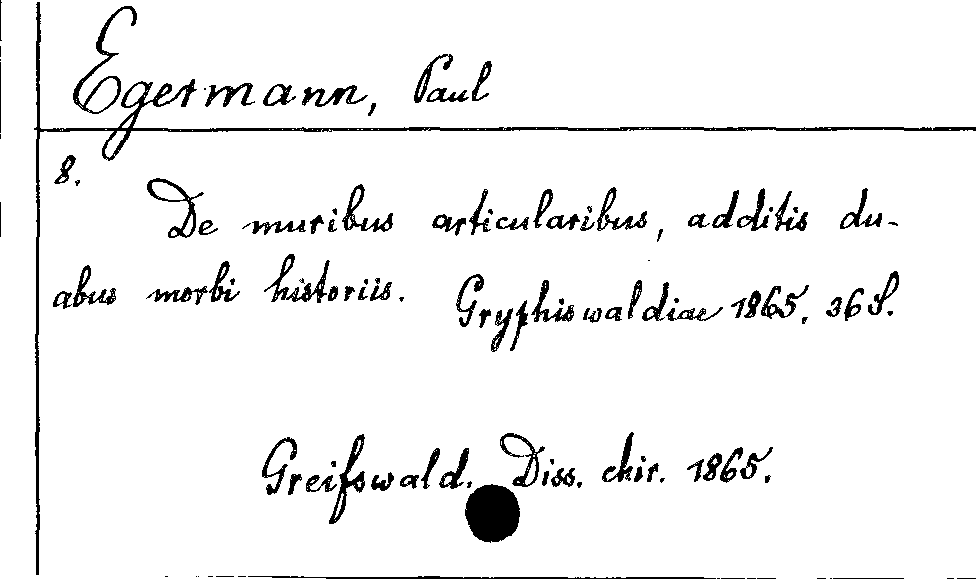 Egermann, Paul
8.
De muribus articularibus, additis du-
abus morbi historiis. Gryphiswaldiae 1865. 36 S.
Greifswald. Diss. chir. 1865.